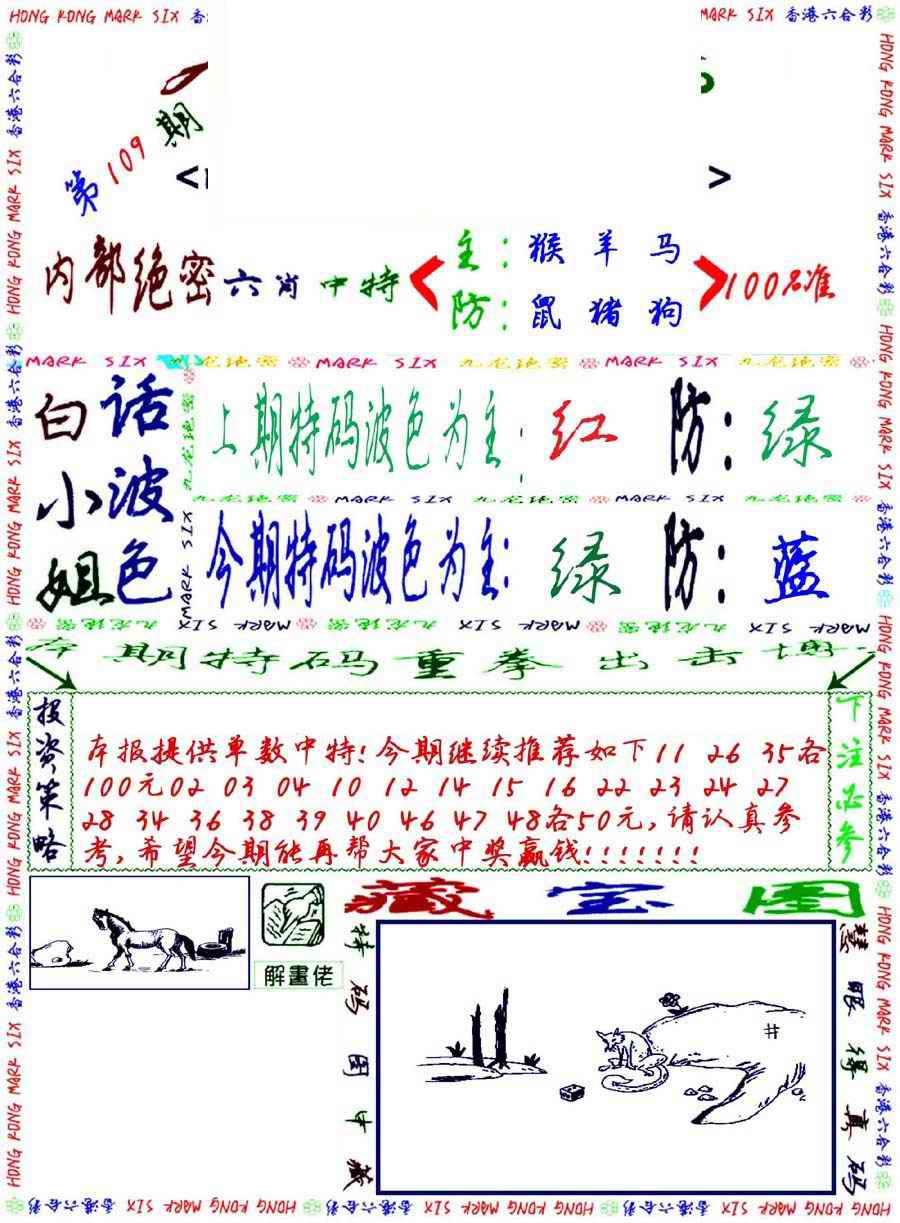 HONG KONG MARK SIX 香港六合彩
第109期
< >
内部绝密六肖中特
主：猴 羊 马
防：鼠 猪 狗
100%准
MARK SIX 九龙地密 MARK SIX 九龙地密 MARK SIX 九龙地密
白话
小波
姐色
上期特码波色为主：红 防：绿
九龙地密 MARK SIX 九龙地密 MARK SIX 九龙地密
今期特码波色为主：绿 防：蓝
MARK SIX 九龙地密 MARK SIX 九龙地密 MARK SIX 九龙地密
本期特码重拳出击
投资策略
本报提供单数中特!今期继续推荐如下11 26 35各
100元02 03 04 10 12 14 15 16 22 23 24 27
28 34 36 38 39 40 46 47 48各50元,请认真参
考,希望今期能再帮大家中奖赢钱!!!!!!!
下注必参
解畫佬
藏宝图
特码图中藏
慧眼得真码
井
HONG KONG MARK SIX 香港六合彩